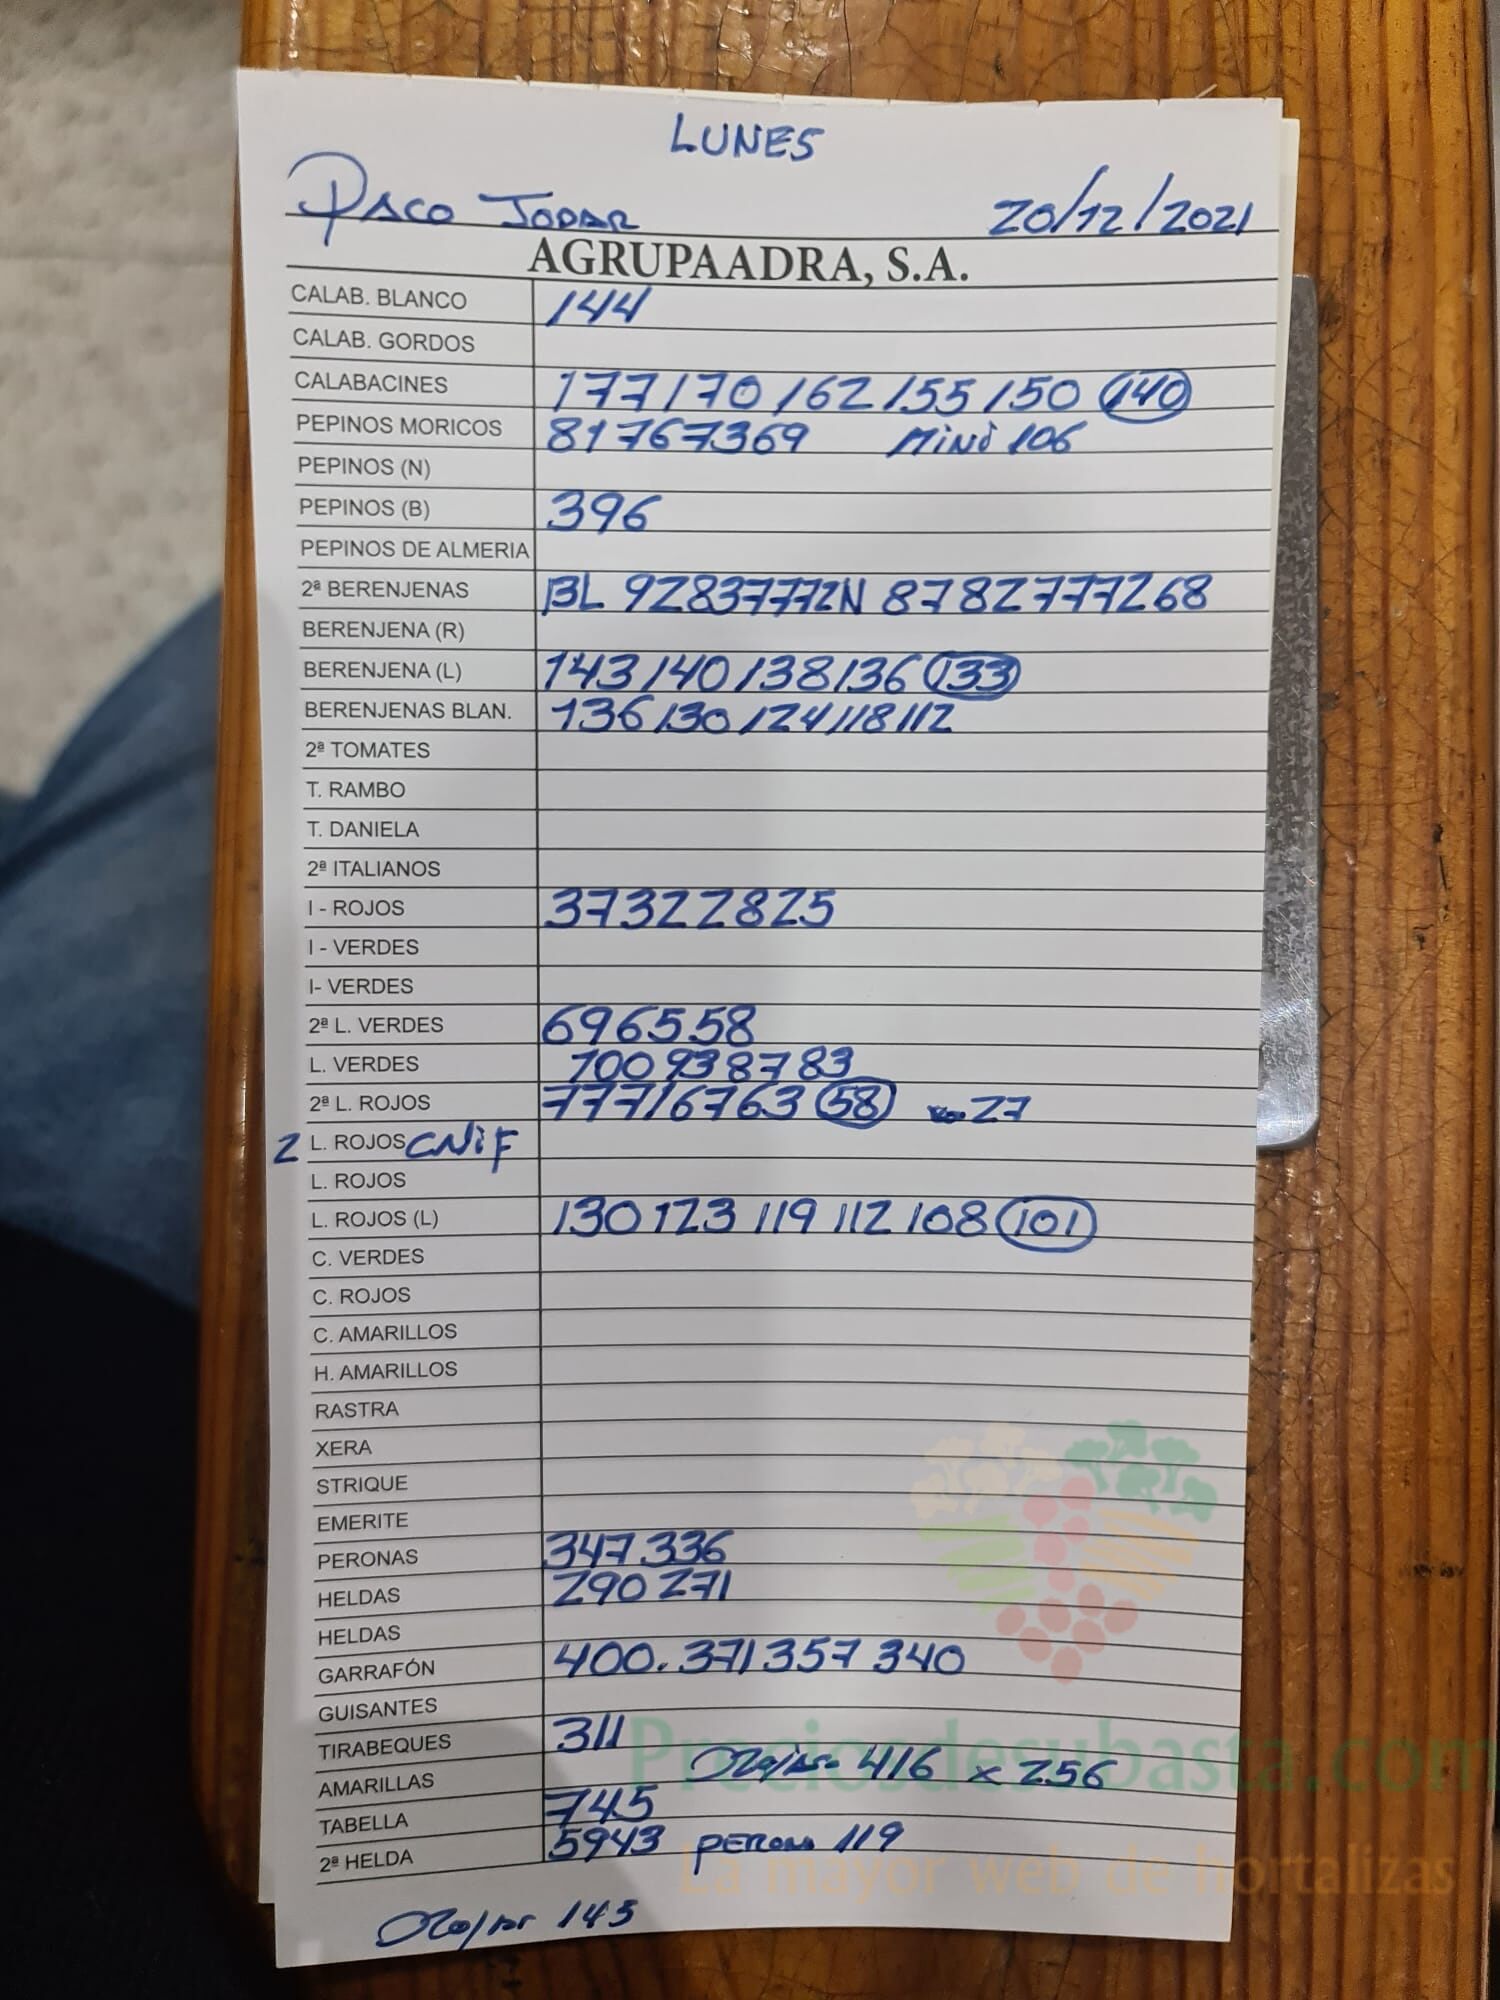 LUNES
PACO JODAR 20/12/2021
AGRUPAADRA, S.A.
CALAB. BLANCO 144
CALAB. GORDOS
CALABACINES 177 170 162 155 150 140
PEPINOS MORICOS 81 76 73 69 MINI 106
PEPINOS (N)
PEPINOS (B) 396
PEPINOS DE ALMERIA
2ª BERENJENAS BL 92 83 77 72 N 87 82 77 72 68
BERENJENA (R)
BERENJENA (L) 143 140 138 136 133
BERENJENAS BLAN. 136 130 124 118 112
2ª TOMATES
T. RAMBO
T. DANIELA
2ª ITALIANOS
I - ROJOS 37 32 28 25
I - VERDES
I- VERDES
2ª L. VERDES 69 65 58
L. VERDES 100 93 87 83
2ª L. ROJOS 77 71 67 63 58 27
2 L. ROJOS CNIF
L. ROJOS
L. ROJOS (L) 130 123 119 112 108 101
C. VERDES
C. ROJOS
C. AMARILLOS
H. AMARILLOS
RASTRA
XERA
STRIQUE
EMERITE
PERONAS 347 336
HELDAS 290 271
HELDAS
GARRAFÓN 400. 371 357 340
GUISANTES
TIRABEQUES 311
Preciosdesubasta.com
AMARILLAS 416 x 256
TABELLA 745
2ª HELDA 59 43 PERONA 119
La mayor web de hortalizas
145